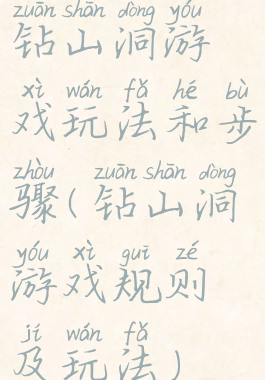 zuān shān dòng yóu
钻山洞游
xì wán fǎ hé bù
戏玩法和步
zhòu zuān shān dòng
骤(钻山洞
yóu xì guī zé
游戏规则
jí wán fǎ
及玩法)